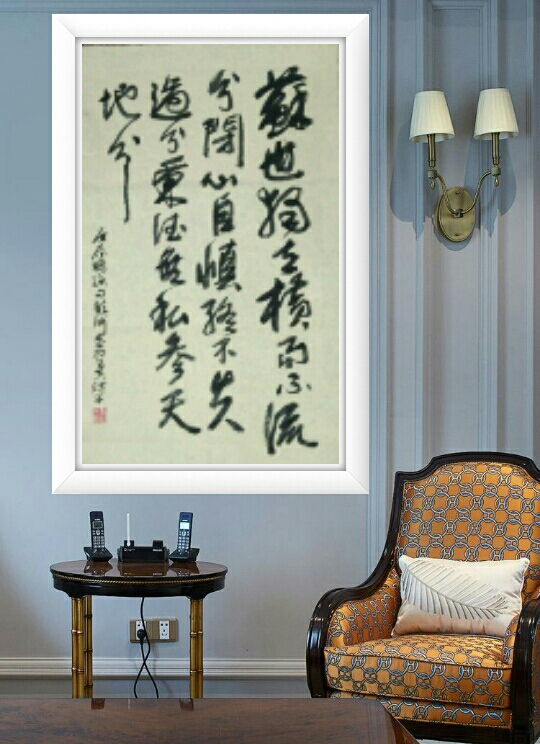 蘇世獨立横而不流
兮閉心自慎終不失
過兮秉德無私參天
地兮